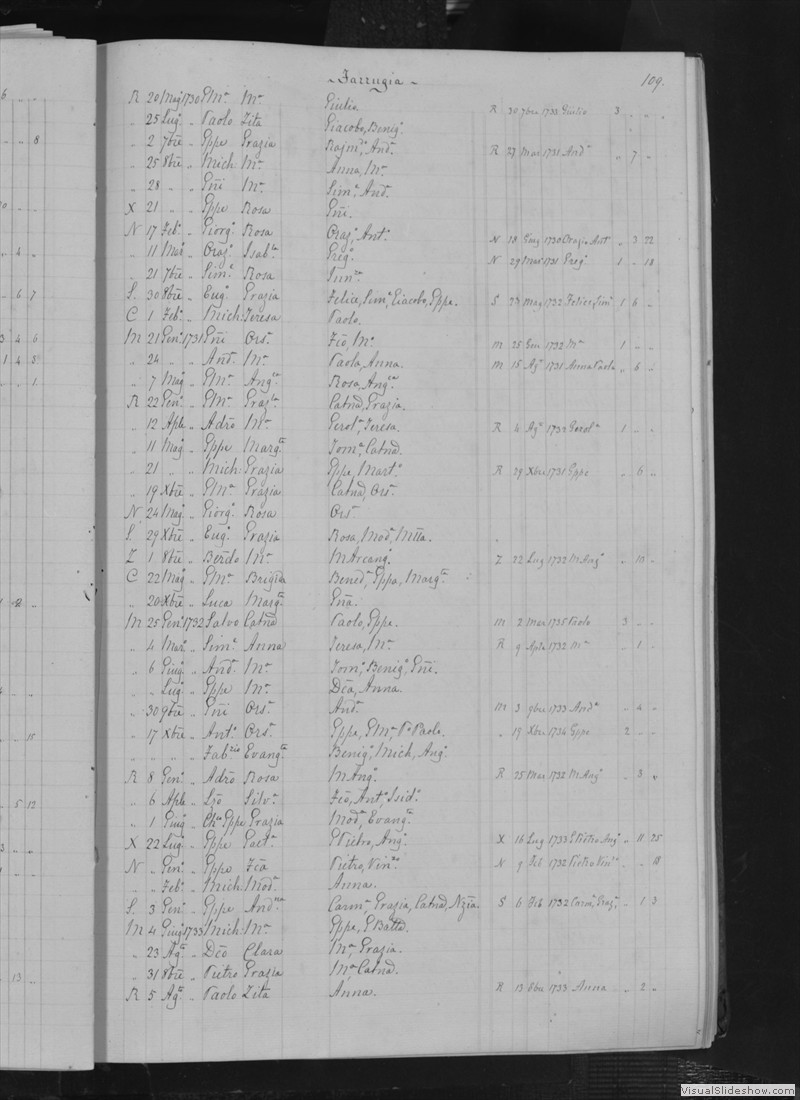 Farrugia 109.
R 20 Mag 1730 GMa Ma Giulia R 30 7bre 1733 Giulio 3 " "
" 25 Lug " Paolo Zita Giacobo, Benig.
" 2 7bre " Gppe Grazia Raimdo, Anda R 27 Mar 1731 Anda " 7 "
" 25 8bre " Mich Ma Anna, Ma
" 28 " " Gni Ma Sime, Anda
X 21 " " Gppe Rosa Gni.
N 17 Feb " Giorgo Rosa Orazo, Anto N 18 Gmg 1730 Orazo Ant " 3 22
" 11 Mar " Orazo Isabla Grego N 29 Mar 1731 Grego 1 " 18
" 21 7bre " Sime Rosa
S 30 8bre " Eugo Grazia Felice, Sime, Giacobo, Gppe. S 23 Mag 1732 Felice, Sime 1 6 "
C 1 Feb " Mich: Teresa Paolo.
M 21 Gen 1731 Gni Orsa Fco, Ma M 25 Gen 1732 Ma 1 " "
" 24 " " Anda Ma Paola, Anna. M 15 Ago 1731 Anna Paola " 6 "
" 7 Mag " GMa Angca Rosa, Angca
R 22 Gen " GMa Grazla Catna, Grazia.
" 12 Aple " Adro Ma Gerola, Teresa. R 4 Ago 1732 Gerola 1 " "
" 11 Mag " Gppe Margta Toma, Catna.
" 21 " " Mich: Grazia Gppe, Marto R 29 Xbre 1731 Gppe " 6 "
" 19 Xbre " GMa Grazia Catna, Orsa
N 24 Mag " Giorgo Rosa Orsa
S 29 Xbre " Eugo Grazia Rosa, Moda, Mtta.
Z 1 8bre " Berdo Ma MArcango Z 22 Lug 1732 M Ango " 10 "
C 22 Mag " GMa Brigida Beneda, Gppa, Margta
" 20 Xbre " Luca Margta Gna.
M 25 Gen 1732 Salvo Catna Paolo, Gppe. M 2 Mar 1735 Paolo 3 " "
" 4 Mar " Sime Anna Teresa, Ma R 9 Aple 1732 Ma " 1 "
" 6 Giug " Anda Ma Tomo, Benigo, Gni.
" " Lug " Gppe Ma Dca, Anna.
" 30 9bre " Gni Orsa Anda M 3 9bre 1733 Anda " 4 "
" 17 Xbre " Anto Orsa Gppe, GMa Pa Paolo. " 19 Xbre 1734 Gppe 2 " "
" " " " Fabzio Evangta Benigo, Mich, Ango
R 8 Gen " Adro Rosa M Ango R 25 Mar 1732 M Ango " 3 "
" 6 Aple " Lzo Silva Fco, Anto, Isido
" 1 Giug " Gppe Grazia Moda, Evangta
X 22 Lug " Gppe Gaeta GPietro, Ango X 16 Lug 1733 GPietro Ango " 11 25
N " Gen " Gppe Fca Pietro, Vinzo N 9 Feb 1732 Pietro Vinzo " " 11
" " Feb " Mich Moda Anna.
S 3 Gen " Gppe Andna Carma, Grazia, Catna, Nzia. S 6 Feb 1732 Carma, Graza " 1 3
M 4 Giug 1733 Mich: Ma Gppe, GBatta.
" 23 Agto " Dco Clara Ma, Grazia.
" 31 8bre " Pietro Grazia Ma, Catna.
R 5 Agto " Paolo Zita Anna. R 13 8bre 1733 Anna " 2 "
VisualSlideshow.com